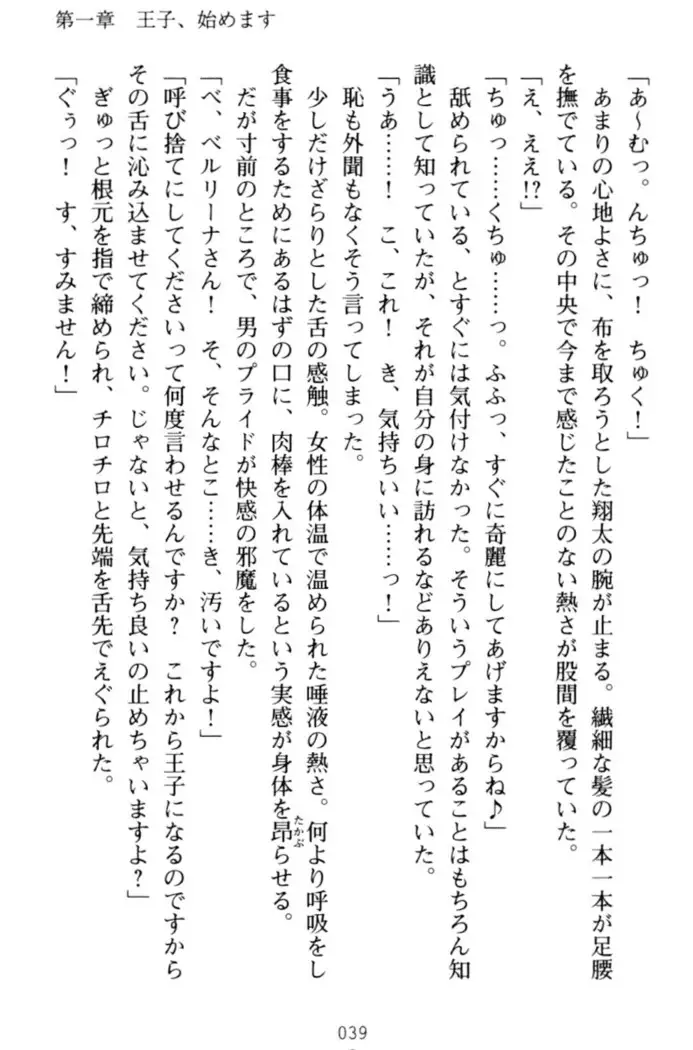 第一章　王子、始めます
「あ〜むっ。んちゅっ！　ちゅく！」
　あまりの心地よさに、布を取ろうとした翔太の腕が止まる。繊細な髪の一本一本が足腰
を撫でている。その中央で今まで感じたことのない熱さが股間を覆っていた。
「え、ええ!?」
「ちゅっ……くちゅ……っ。ふふっ、すぐに奇麗にしてあげますからね♪」
　舐められている、とすぐには気付けなかった。そういうプレイがあることはもちろん知
識として知っていたが、それが自分の身に訪れるなどありえないと思っていた。
「うあ……！　こ、これ！　き、気持ちいい……っ！」
　恥も外聞もなくそう言ってしまった。
　少しだけざらりとした舌の感触。女性の体温で温められた唾液の熱さ。何より呼吸をし
食事をするためにあるはずの口に、肉棒を入れているという実感が身体を昂らせる。
たかぶ
　だが寸前のところで、男のプライドが快感の邪魔をした。
「べ、ベルリーナさん！　そ、そんなとこ……き、汚いですよ！」
「呼び捨てにしてくださいって何度言わせるんですか？　これから王子になるのですから
その舌に沁み込ませてください。じゃないと、気持ち良いの止めちゃいますよ？」
　ぎゅっと根元を指で締められ、チロチロと先端を舌先でえぐられた。
「ぐぅっ！　す、すみません！」
039